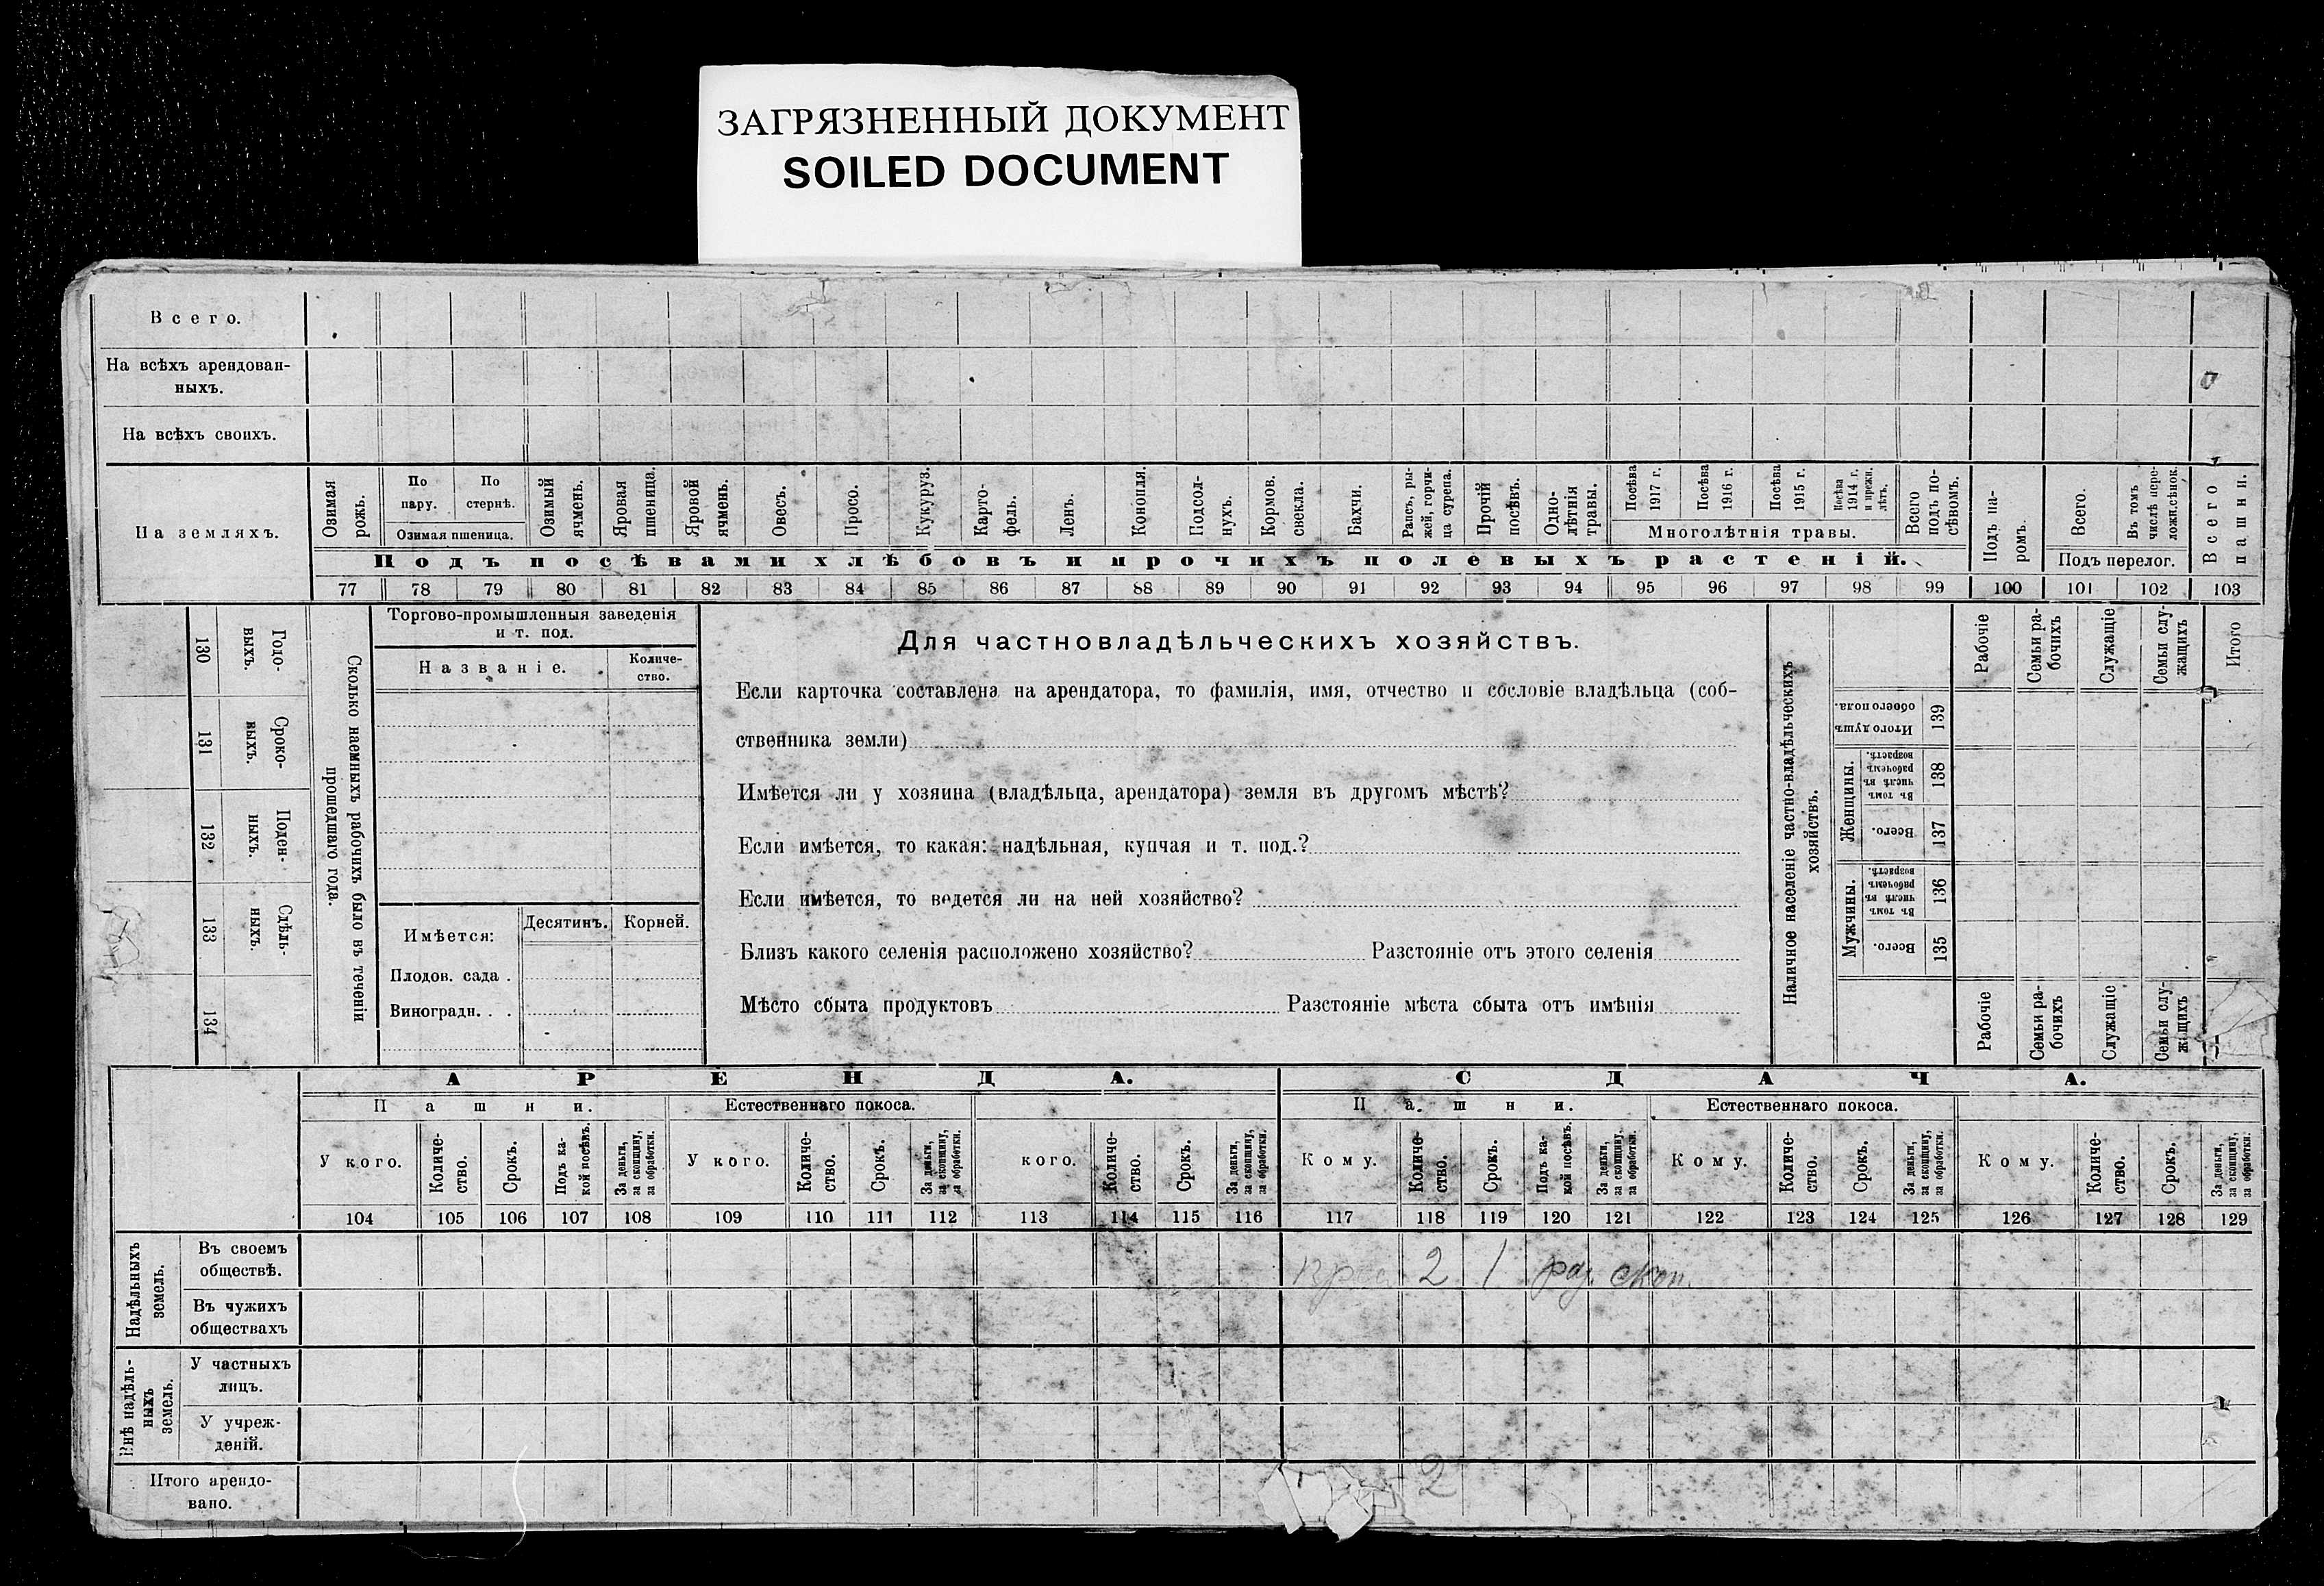 ЗАГРЯЗНЕННЫЙ ДОКУМЕНТ
SOILED DOCUMENT
Всего.
На всѣхъ арендован-
ныхъ.
На всѣхъ своихъ.
На земляхъ.
Озимая рожь.
По пару.
По стернѣ.
Озимая пшеница.
Озимый ячмень.
Яровая пшеница.
Яровой ячмень.
Овесъ.
Просо.
Кукуруз.
Карто-
фель.
Ленъ.
Конопля.
Подсол-
нухъ.
Кормов.
свекла.
Бахчи.
Рапсъ, ры-
жей, горчи-
ца сурепа.
Прочій посѣвъ.
Одно-
лѣтнія
травы.
Посѣва 1917 г.
Посѣва 1916 г.
Посѣва 1915 г.
Посѣва 1914 г. и прежн. лѣтъ.
Многолѣтнія травы.
Всего подъ по-
сѣвомъ.
Подъ посѣвами хлѣбовъ и прочихъ полевыхъ растеній.
Подъ па-
ромъ.
Всего.
Въ томъ
числѣ пере-
ложн.сѣнок.
Подъ перелог.
Всего пашни.
77 78 79 80 81 82 83 84 85 86 87 88 89 90 91 92 93 94 95 96 97 98 99 100 101 102 103
130 Годо-
выхъ.
131 Сроко-
выхъ.
132 Поден-
ныхъ.
133 Сдѣль-
ныхъ.
134
Сколько наемныхъ рабочихъ было въ теченіи
прошедшаго года.
Торгово-промышленныя заведенія
и т. под.
Названіе.
Количе-
ство.
Имѣется:
Десятинъ.
Корней.
Плодов. сада .
Виноградн. . .
Для частновладѣльческихъ хозяйствъ.
Если карточка составлена на арендатора, то фамилія, имя, отчество и сословіе владѣльца (соб-
ственника земли)
Имѣется ли у хозяина (владѣльца, арендатора) земля въ другомъ мѣстѣ?
Если имѣется, то какая: надѣльная, купчая и т. под.?
Если имѣется, то ведется ли на ней хозяйство?
Близъ какого селенія расположено хозяйство? Разстояніе отъ этого селенія
Мѣсто сбыта продуктовъ Разстояніе мѣста сбыта отъ имѣнія
Наличное населеніе частно-владѣльческихъ
хозяйствъ.
Рабочіе
Семьи ра-
бочихъ
Служащіе
Семьи слу-
жащихъ
Итого
Итого душъ
обоего пола.
139
Женщины.
Въ томъ числѣ въ рабочемъ возрастѣ.
138
Всего.
137
Мужчины.
Въ томъ числѣ въ рабочемъ возрастѣ.
136
Всего.
135
Рабочіе
Семьи ра-
бочихъ
Служащіе
Семьи слу-
жащихъ
АРЕНДА.
СДАЧА.
Пашни.
Естественнаго покоса.
Пашни.
Естественнаго покоса.
У кого.
Количе-
ство.
Срокъ.
Подъ ка-
кой посѣвъ.
За деньги,
за скопщину,
за обработки.
У кого.
Количе-
ство.
Срокъ.
За деньги,
за скопщину,
за обработки.
кого.
Количе-
ство.
Срокъ.
За деньги,
за скопщину,
за обработки.
Кому.
Количе-
ство.
Срокъ.
Подъ ка-
кой посѣвъ.
За деньги,
за скопщину,
за обработки.
Кому.
Количе-
ство.
Срокъ.
За деньги,
за скопщину,
за обработки.
Кому.
Количе-
ство.
Срокъ.
За деньги,
за скопщину,
за обработки.
104 105 106 107 108 109 110 111 112 113 114 115 116 117 118 119 120 121 122 123 124 125 126 127 128 129
Надѣльныхъ
земель.
Въ своемъ
обществѣ.
2 1 раз скоп.
Въ чужихъ
обществахъ
Внѣ надѣль-
ныхъ
земель.
У частныхъ
лицъ.
У учреж-
деній.
Итого арендо-
вано.
2